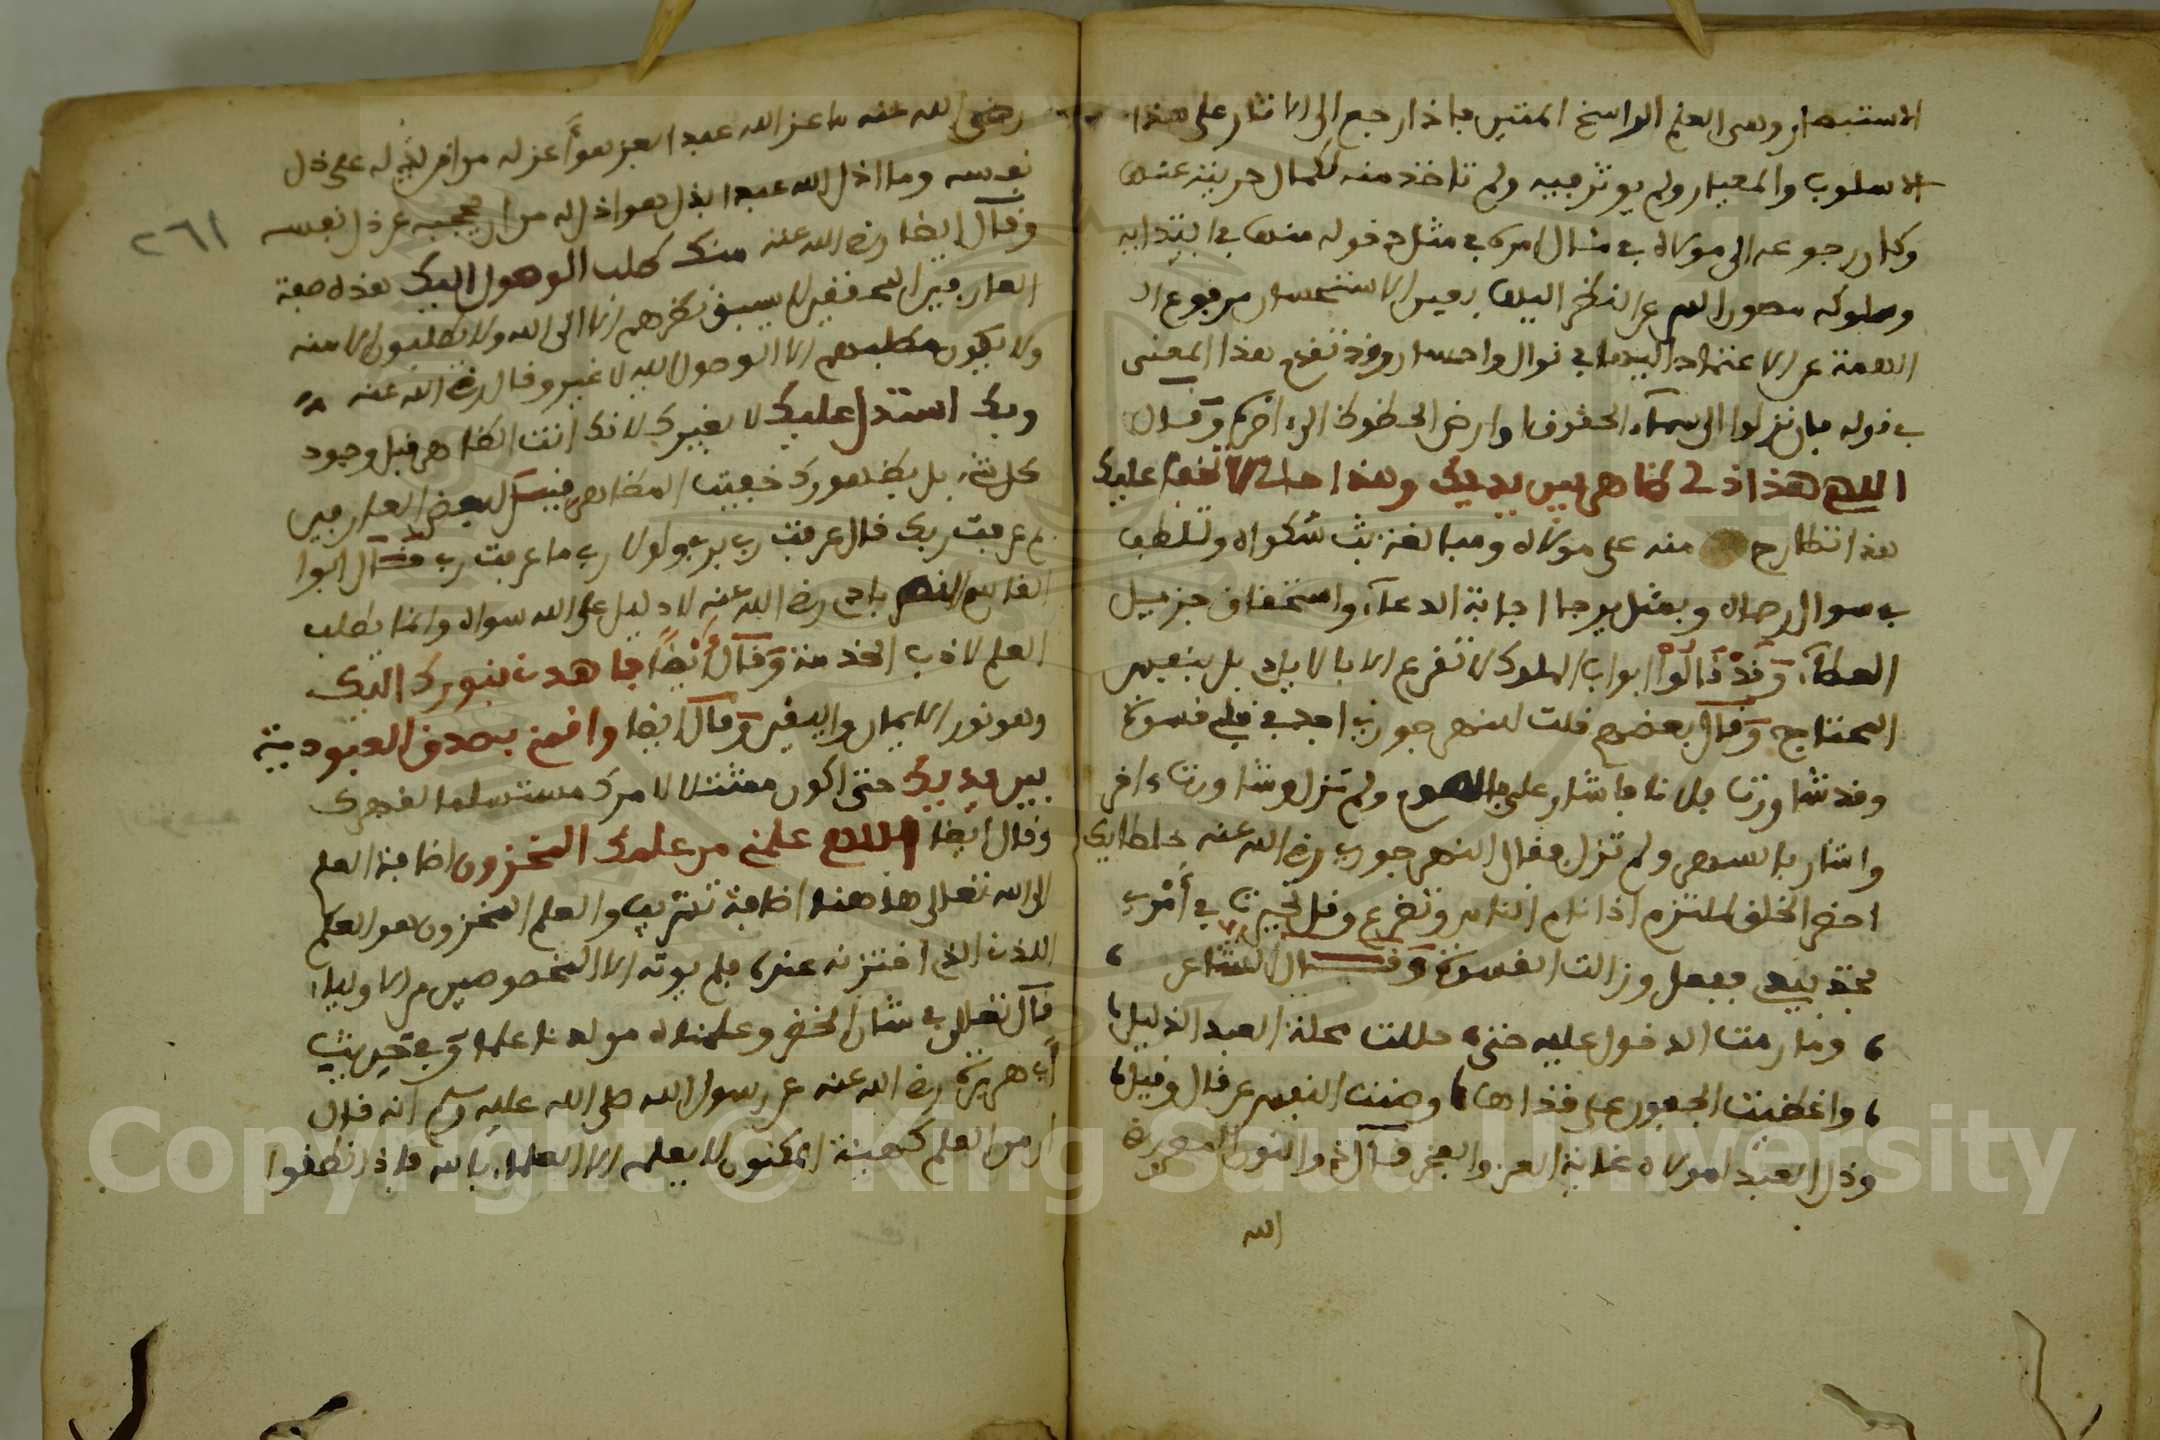 الاستبصار وهى العلم الراسخ المتين فاذا رجع الى الاثار على هذا
الاسلوب والمعيار ولم يوثر فيه ولم تاخذ منه لكمال حريته عنها
وكان رجوعه الى مولاه في مثل دخوله منها في ابتدايه
وسلوكه مصون السر عن النظر اليها بعين الاستحسان مرفوع الـ
الهمة عن الاعتماد اليها في نوال واحسان وقد تقدم هذا المعنى
في قوله فان نزلوا الى سماء الحقوق او ارض الحظوظ الى اخره وقال
اللهم هذا ذلي ظاهر بين يديك وهذا حالي لا يخفى عليك
هذا انطارح منه على مولاه ومبالغة في بث شكواه وتلطف
في سوال رضاه وبمثل يرجا اجابة الدعاء واستحقاق جزيل
العطاء وقد قالوا ابواب الملوك لا تقرع الا بالايد بل بنفس
المحتاج وقال بعضهم قلت للنهرجوري اجد في قلبي قسوة
وقد شاورت فلانا فاشار علي بالصوم ولم تزل وشاورت ءاخر
واشار بالسهر ولم تزل فقال النهرجوري رضي الله عنه خطا بك
احضر الملتزم اذا نام الناس وتضرع وقل تحيرت في امري
فخذ بيدي ففعل وزالت القسوة وقال الشاعر
وما رمت الدخول عليه حتى حللت محلة العبد الذليل
واغضيت الجفون على قذاها وصنت النفس عن قال وقيل
وذل العبد لمولاه غاية العز والفخر قال ذو النون المصري
الله
رضي الله عنه ما اعز الله عبدا بعز هو اعز له من ان يدله على ذل
نفسه وما اذل الله عبدا بذل هو اذل له من ان يحجبه عن ذل نفسه
٢٦١
وقال ايضا رضي الله عنه منك اطلب الوصول اليك هذه صفة
العارفين المحققين لا يسبق نظرهم الا الى الله ولا يطلبون الا منه
ولا يكون مطلبهم الا الوصول لله لا غير وقال رضي الله عنه
وبك استدل عليك لا بغيرك لانك انت الظاهر قبل وجود
كل شيء بل بظهورك خفيت المظاهر قيل لبعض العارفين
بم عرفت ربك قال عرفت ربي بربي ولولا ربي ما عرفت ربي وقال ابوا
القاسم النصراباذي رضي الله عنه لا دليل على الله سواه وانما يطلب
العلم لاداب الخدمة وقال ايضا فاهدني بنورك اليك
وهو نور الايمان واليقين وقال ايضا واقمني بصدق العبودية
بين يديك حتى اكون ممتثلا لامرك مستسلما لقهرك
وقال ايضا اللهم علمني من علمك المخزون اضافة العلم
الى الله تعالى هاهنا اضافة تشريف والعلم المخزون هو العلم
اللدني الذي اختزنه عنده فلم يوته الا المخصوصين من الاولياء
قال تعالى في شان الخضر وعلمناه من لدنا علما وفي حديث
ابي هريرة رضي الله عنه عن رسول الله صلى الله عليه وسلم انه قال
ان من العلم كهيئة المكنون لا يعلمه الا العلماء بالله فاذا نطقوا
Copyright © King Saud University